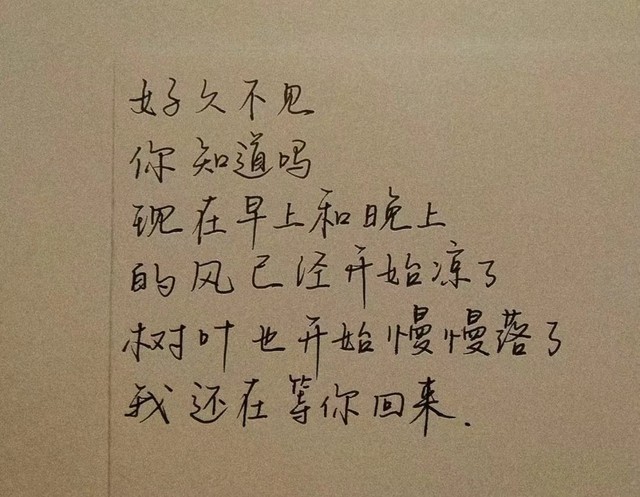 好久不见
你知道吗
现在早上和晚上
的风已经开始凉了
树叶也开始慢慢落了
我还在等你回来.